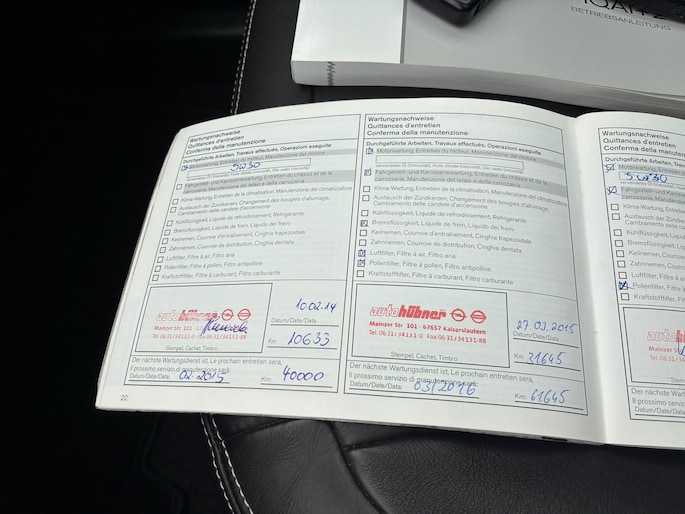 BETRIEBSANLEITUNG
Wartungsnachweise
Quittances d'entretien
Conferma della manutenzione
Durchgeführte Arbeiten, Travaux effectués, Operazioni eseguite
Motorwartung, Entretien du moteur, Manutenzione del motore
5W30
Fahrgestell- und Karosseriewartung, Entretien du châssis et de la
carrosserie, Manutenzione del telaio e della carrozzeria
Klima-Wartung, Entretien de la climatisation, Manutenzione del climatizzatore
Austausch der Zündkerzen, Changement des bougies d'allumage,
Cambiamento delle candele d'accensione
Kühlflüssigkeit, Liquide de refroidissement, Refrigerante
Bremsflüssigkeit, Liquide de frein, Liquido dei freni
Keilriemen, Courroie d'entraînement, Cinghia trapezoidale
Zahnriemen, Courroie de distribution, Cinghia dentata
Luftfilter, Filtre à air, Filtro aria
Pollenfilter, Filtre à pollen, Filtro antipolline
Kraftstofffilter, Filtre à carburant, Filtro carburante
autohübner
Mainzer Str. 101
Tel. 0631/34131-0 Fax 0631/34131-88
Stempel, Cachet, Timbro
10.02.14
Datum/Date/Data
Km: 10633
Der nächste Wartungsdienst ist, Le prochain entretien sera,
Il prossimo servizio di manutenzione sarà:
Datum/Date/Data: 02.2015 Km: 40000
22
Wartungsnachweise
Quittances d'entretien
Conferma della manutenzione
Durchgeführte Arbeiten, Travaux effectués, Operazioni eseguite
Motorwartung, Entretien du moteur, Manutenzione del motore
Fahrgestell- und Karosseriewartung, Entretien du châssis et de la
carrosserie, Manutenzione del telaio e della carrozzeria
Klima-Wartung, Entretien de la climatisation, Manutenzione del climatizzatore
Austausch der Zündkerzen, Changement des bougies d'allumage,
Cambiamento delle candele d'accensione
Kühlflüssigkeit, Liquide de refroidissement, Refrigerante
Bremsflüssigkeit, Liquide de frein, Liquido dei freni
Keilriemen, Courroie d'entraînement, Cinghia trapezoidale
Zahnriemen, Courroie de distribution, Cinghia dentata
Luftfilter, Filtre à air, Filtro aria
Pollenfilter, Filtre à pollen, Filtro antipolline
Kraftstofffilter, Filtre à carburant, Filtro carburante
autohübner
Mainzer Str. 101 67657 Kaiserslautern
Tel. 0631/34131-0 Fax 0631/34131-88
Stempel, Cachet, Timbro
27.03.2015
Datum/Date/Data
Km: 31645
Der nächste Wartungsdienst ist, Le prochain entretien sera,
Il prossimo servizio di manutenzione sarà:
Datum/Date/Data: 03/2016 Km: 61645
Wartungsnachweise
Quittances d'entretien
Conferma della manutenzione
Durchgeführte Arbeiten
Motorwartung, Entretien
5W30
Fahrgestell- und Karosse
carrosserie, Manutenzione
Klima-Wartung, Entretien
Austausch der Zündkerzen
Cambiamento delle cand
Kühlflüssigkeit, Liquide
Bremsflüssigkeit, Liquide
Keilriemen, Courroie
Zahnriemen, Courroie
Luftfilter, Filtre à air
Pollenfilter, Filtre à
Kraftstofffilter, Filtre
Mainzer S
Tel. 0631/3
Der nächste Wartung
Il prossimo servizio
Datum/Date/Data: